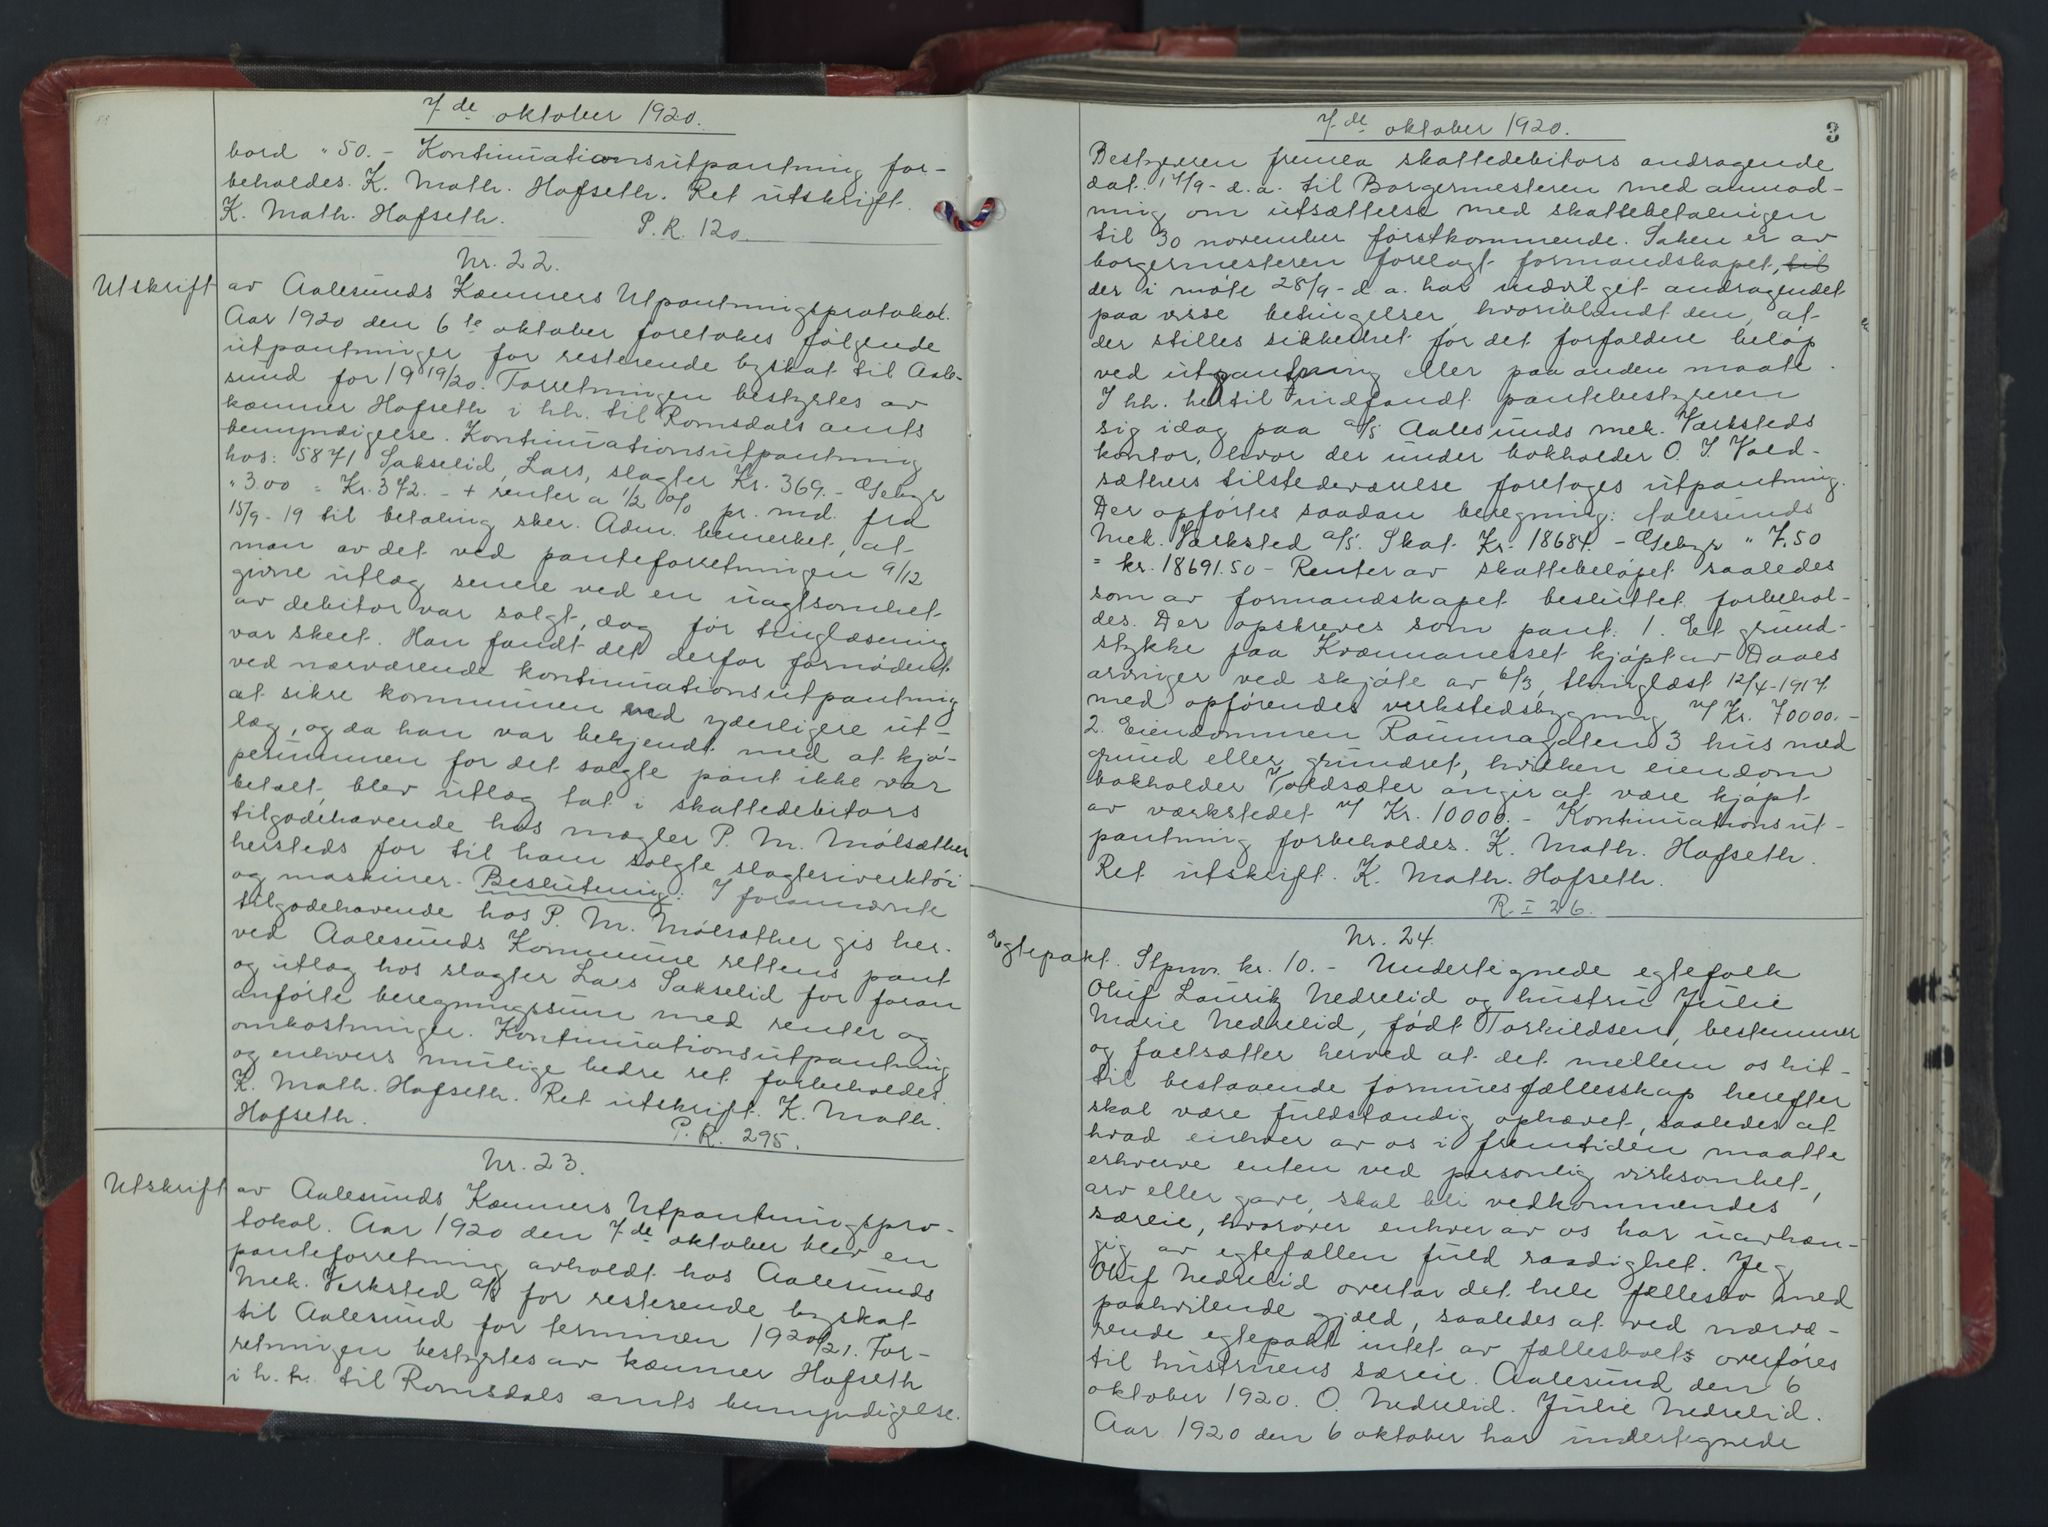 7de oktober 1920.
bord " 50.- Kontinuationsutpantning for-
beholdes. K. Math. Hofseth. Ret utskrift.
K. Math. Hofseth. P.R. 120.
Nr. 22.
Utskrift av Aalesunds Kæmners Utpantningsprotokol.
Aar 1920 den 6te oktober foretokes følgende
utpantninger for resterende byskat til Aale-
sund for 1919/20. Forretningen bestyrtes av
kæmner Hofseth i hh. til Romsdals amts
bemyndigelse. Kontinuationsutpantning
hos: 5871 Sakselid, Lars, slagter Kr. 369.- Gebyr
" 3.00 = Kr. 372.- + renter a 1/2 % pr. md. fra
15/9-19 til betaling sker. Adm. bemerket, at
man av det ved panteforretningen 9/12
givne utlæg senere ved en uagtsomhet
av debitor var solgt, dog før tinglæsning
var skeet. Han fandt det derfor fornødent
ved nærværende kontinuationsutpantning
at sikre kommunen ved yderligere ut-
læg, og da han var bekjendt med at kjø-
pesummen for det solgte pant ikke var
betalt, blev utlæg tat i skattedebitors
tilgodehavende hos mægler P. M. Mølsæther
hersteds for til ham solgte slagteriverktøi
og maskiner. Beslutning: I forannævnte
tilgodehavende hos P. M. Mølsæther gis her-
ved Aalesunds Kommune rettens pant
og utlæg hos slagter Lars Sakselid for foran
anførte beregningssum med renter og
omkostninger. Kontinuationsutpantning
og enhvers mulige bedre ret forbeholdes.
K. Math. Hofseth. Ret utskrift. K. Math.
Hofseth. P.R. 295.
Nr. 23.
Utskrift av Aalesunds Kæmners Utpantningspro-
tokol. Aar 1920 den 7de oktober blev en
panteforretning avholdt hos Aalesunds
Mek. Verksted a/s for resterende byskat
til Aalesund for terminen 1920/21. For-
retningen bestyrtes av kæmner Hofseth
i h. h. til Romsdals amts bemyndigelse.
7de oktober 1920. 3
Bestyreren fremla skattedebitors andragende
dat. 17/9- d.a. til Borgermesteren med anmod-
ning om utsættelse med skattebetalingen
til 30 november førstkommende. Saken er av
borgermesteren forelagt formandskapet, til
der i møte 28/9- d.a. har indvilget andragendet
paa visse betingelser, hvoriblandt den, at
der stilles sikkerhet for det forfaldne beløp
ved utpantning eller paa anden maate.
I hh. hertil indfandt pantebestyreren
sig idag paa a/s Aalesunds mek. Værksteds
kontor, hvor der under bokholder O. J. Vold-
sæthers tilstedeværelse foretoges utpantning.
Der opførtes saadan beregning: Aalesunds
Mek. Værksted a/s. Skat Kr. 18684.- Gebyr " 7.50
= kr. 18691.50 - Renter av skattebeløpet saaledes
som av formandskapet besluttet forbehol-
des. Der opskreves som pant: 1. Et grund-
stykke paa Kvennaneset kjøpt av Daaes
arvinger ved skjøte av 6/3, thinglæst 12/4-1917.
med opførendes verkstedsbygning v/ Kr. 70000.-
2. Eiendommen Raumagaten 3 hus med
grund eller grundret, hvilken eiendom
bokholder Voldsæter angir at være kjøpt
av værkstedet v/ Kr. 10000.- Kontinuationsut-
pantning forbeholdes. K. Math. Hofseth.
Ret utskrift. K. Math. Hofseth.
R. I 26.
Nr. 24.
Egtepakt. Stpm. kr. 10.- Undertegnede egtefolk
Oluf Lauritz Nedrelid og hustru Julie
Marie Nedrelid, født Torkildsen, bestemmer
og fastsætter herved at det mellem os hit-
til bestaaende formuesfællesskap herefter
skal være fuldstændig ophævet, saaledes at
hvad enhver av os i fremtiden maatte
erhverve enten ved personlig virksomhet,
arv eller gave, skal bli vedkommendes
særeie, hvorover enhver av os har uavhæn-
gig av egtefællen fuld raadighet. Jeg
Oluf Nedrelid overtar det hele fællesbo med
paahvilende gjæld, saaledes at ved nærvæ-
rende egtepakt intet av fællesboets overføres
til hustruens særeie. Aalesund den 6
oktober 1920. O. Nedrelid. Julie Nedrelid.
Aar 1920 den 6 oktober har undertegnede